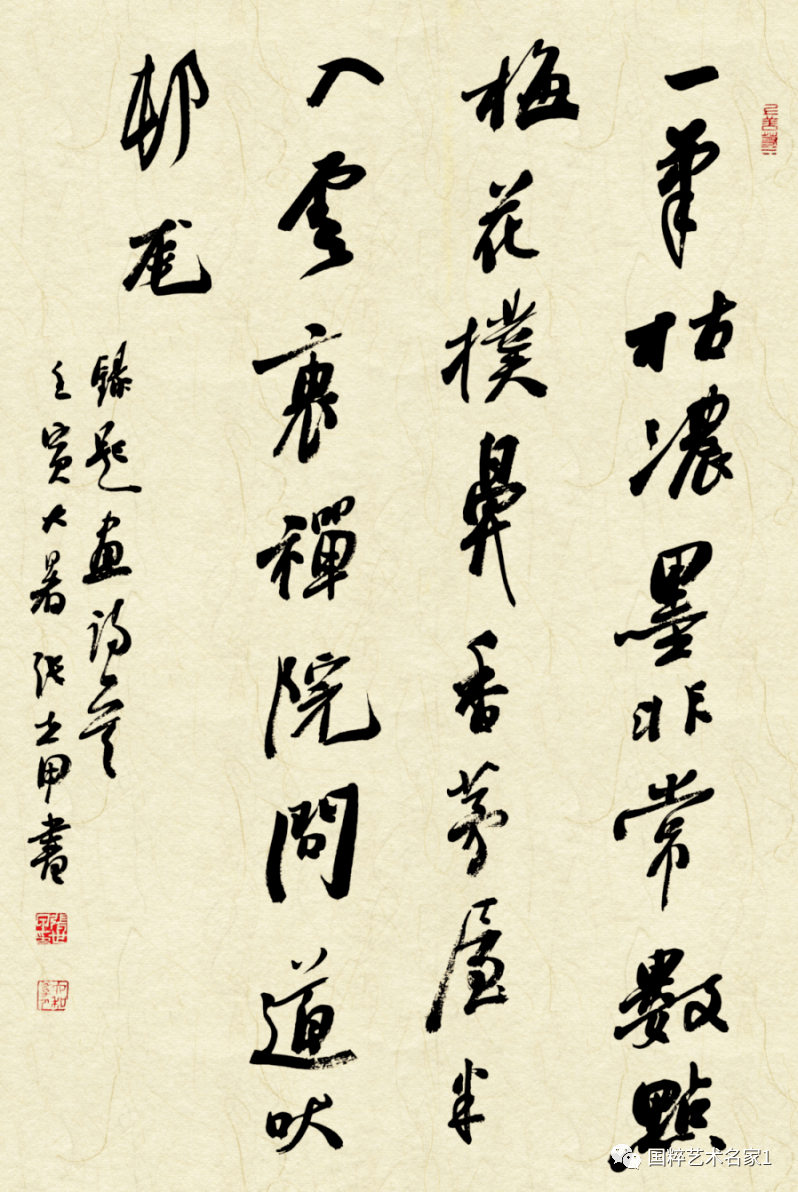 一筆枯濃墨非常數點
梅花撲鼻香茅屋半
入雲裏禪院問道吠
邨尨
錄題畫詩一首
壬寅大暑張士甲書
国粹艺术名家1